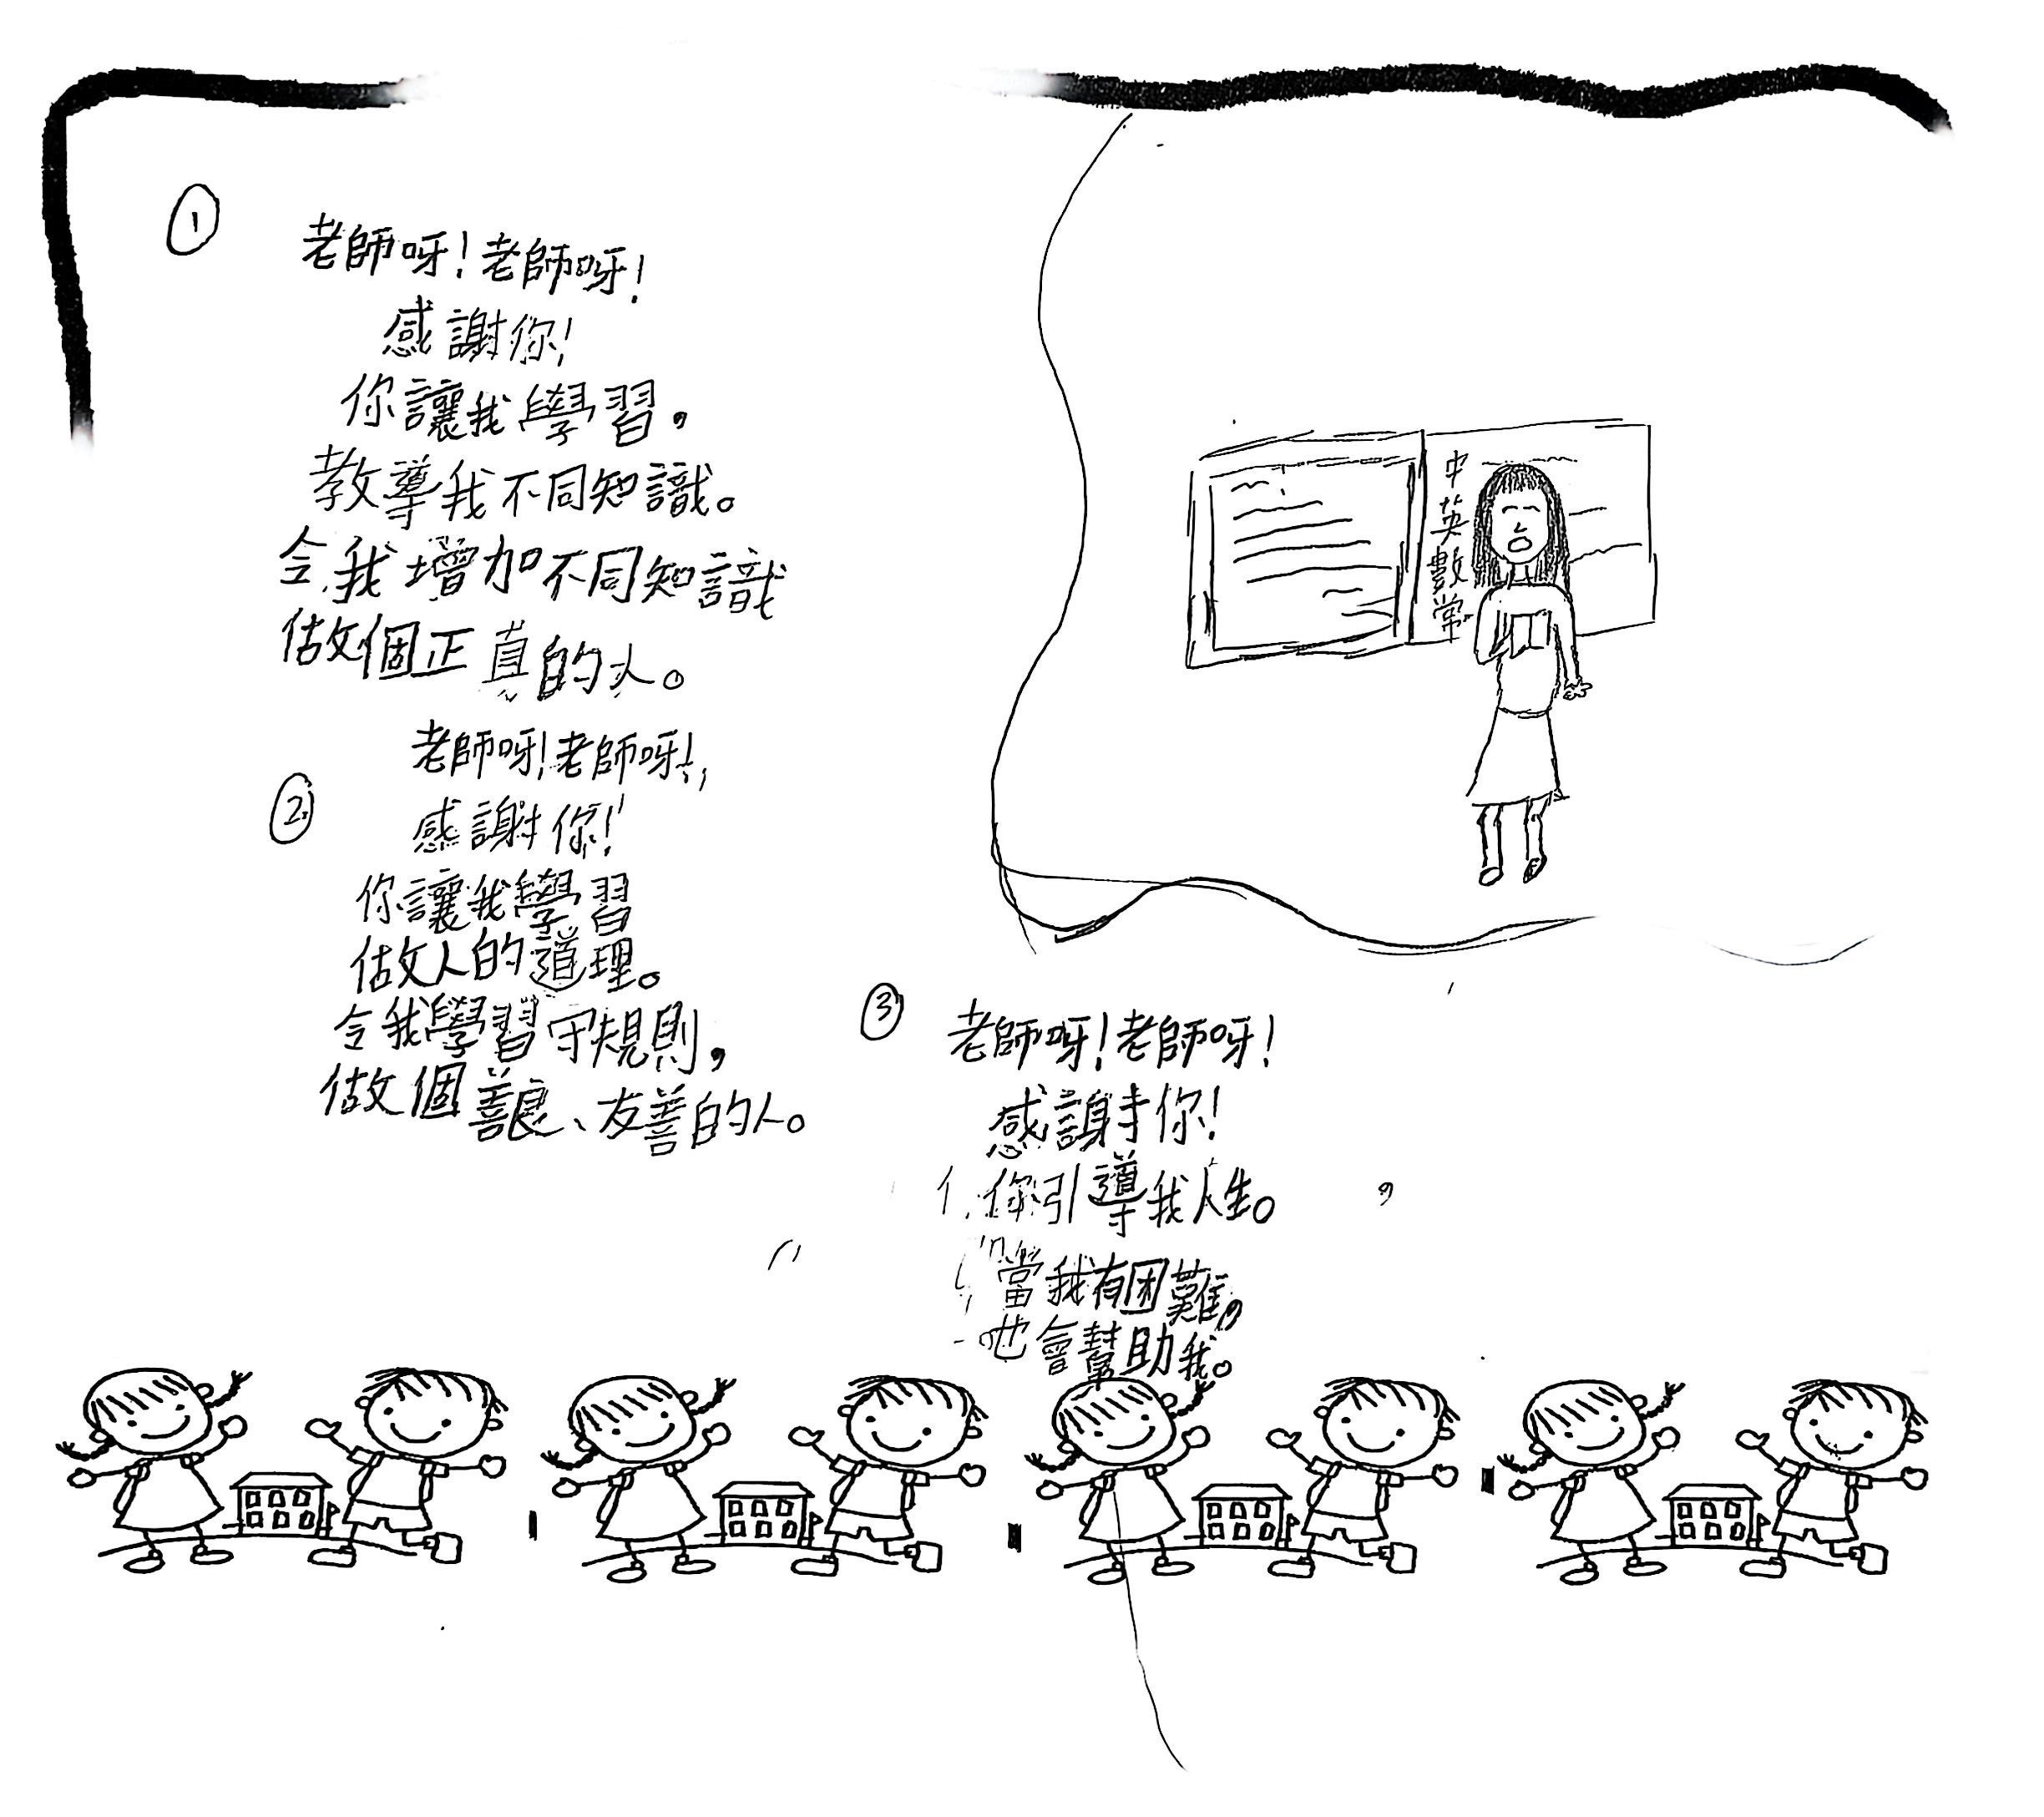 ①
老師呀！老師呀！
感謝你！
你讓我學習，
教導我不同知識。
令我增加不同知識
做個正真的人。
②
老師呀！老師呀！
感謝你！
你讓我學習
做人的道理。
令我學習守規則，
做個善良、友善的人。
③
老師呀！老師呀！
感謝你！
你引導我人生。
當我有困難，
也會幫助我。
中
英
數
常